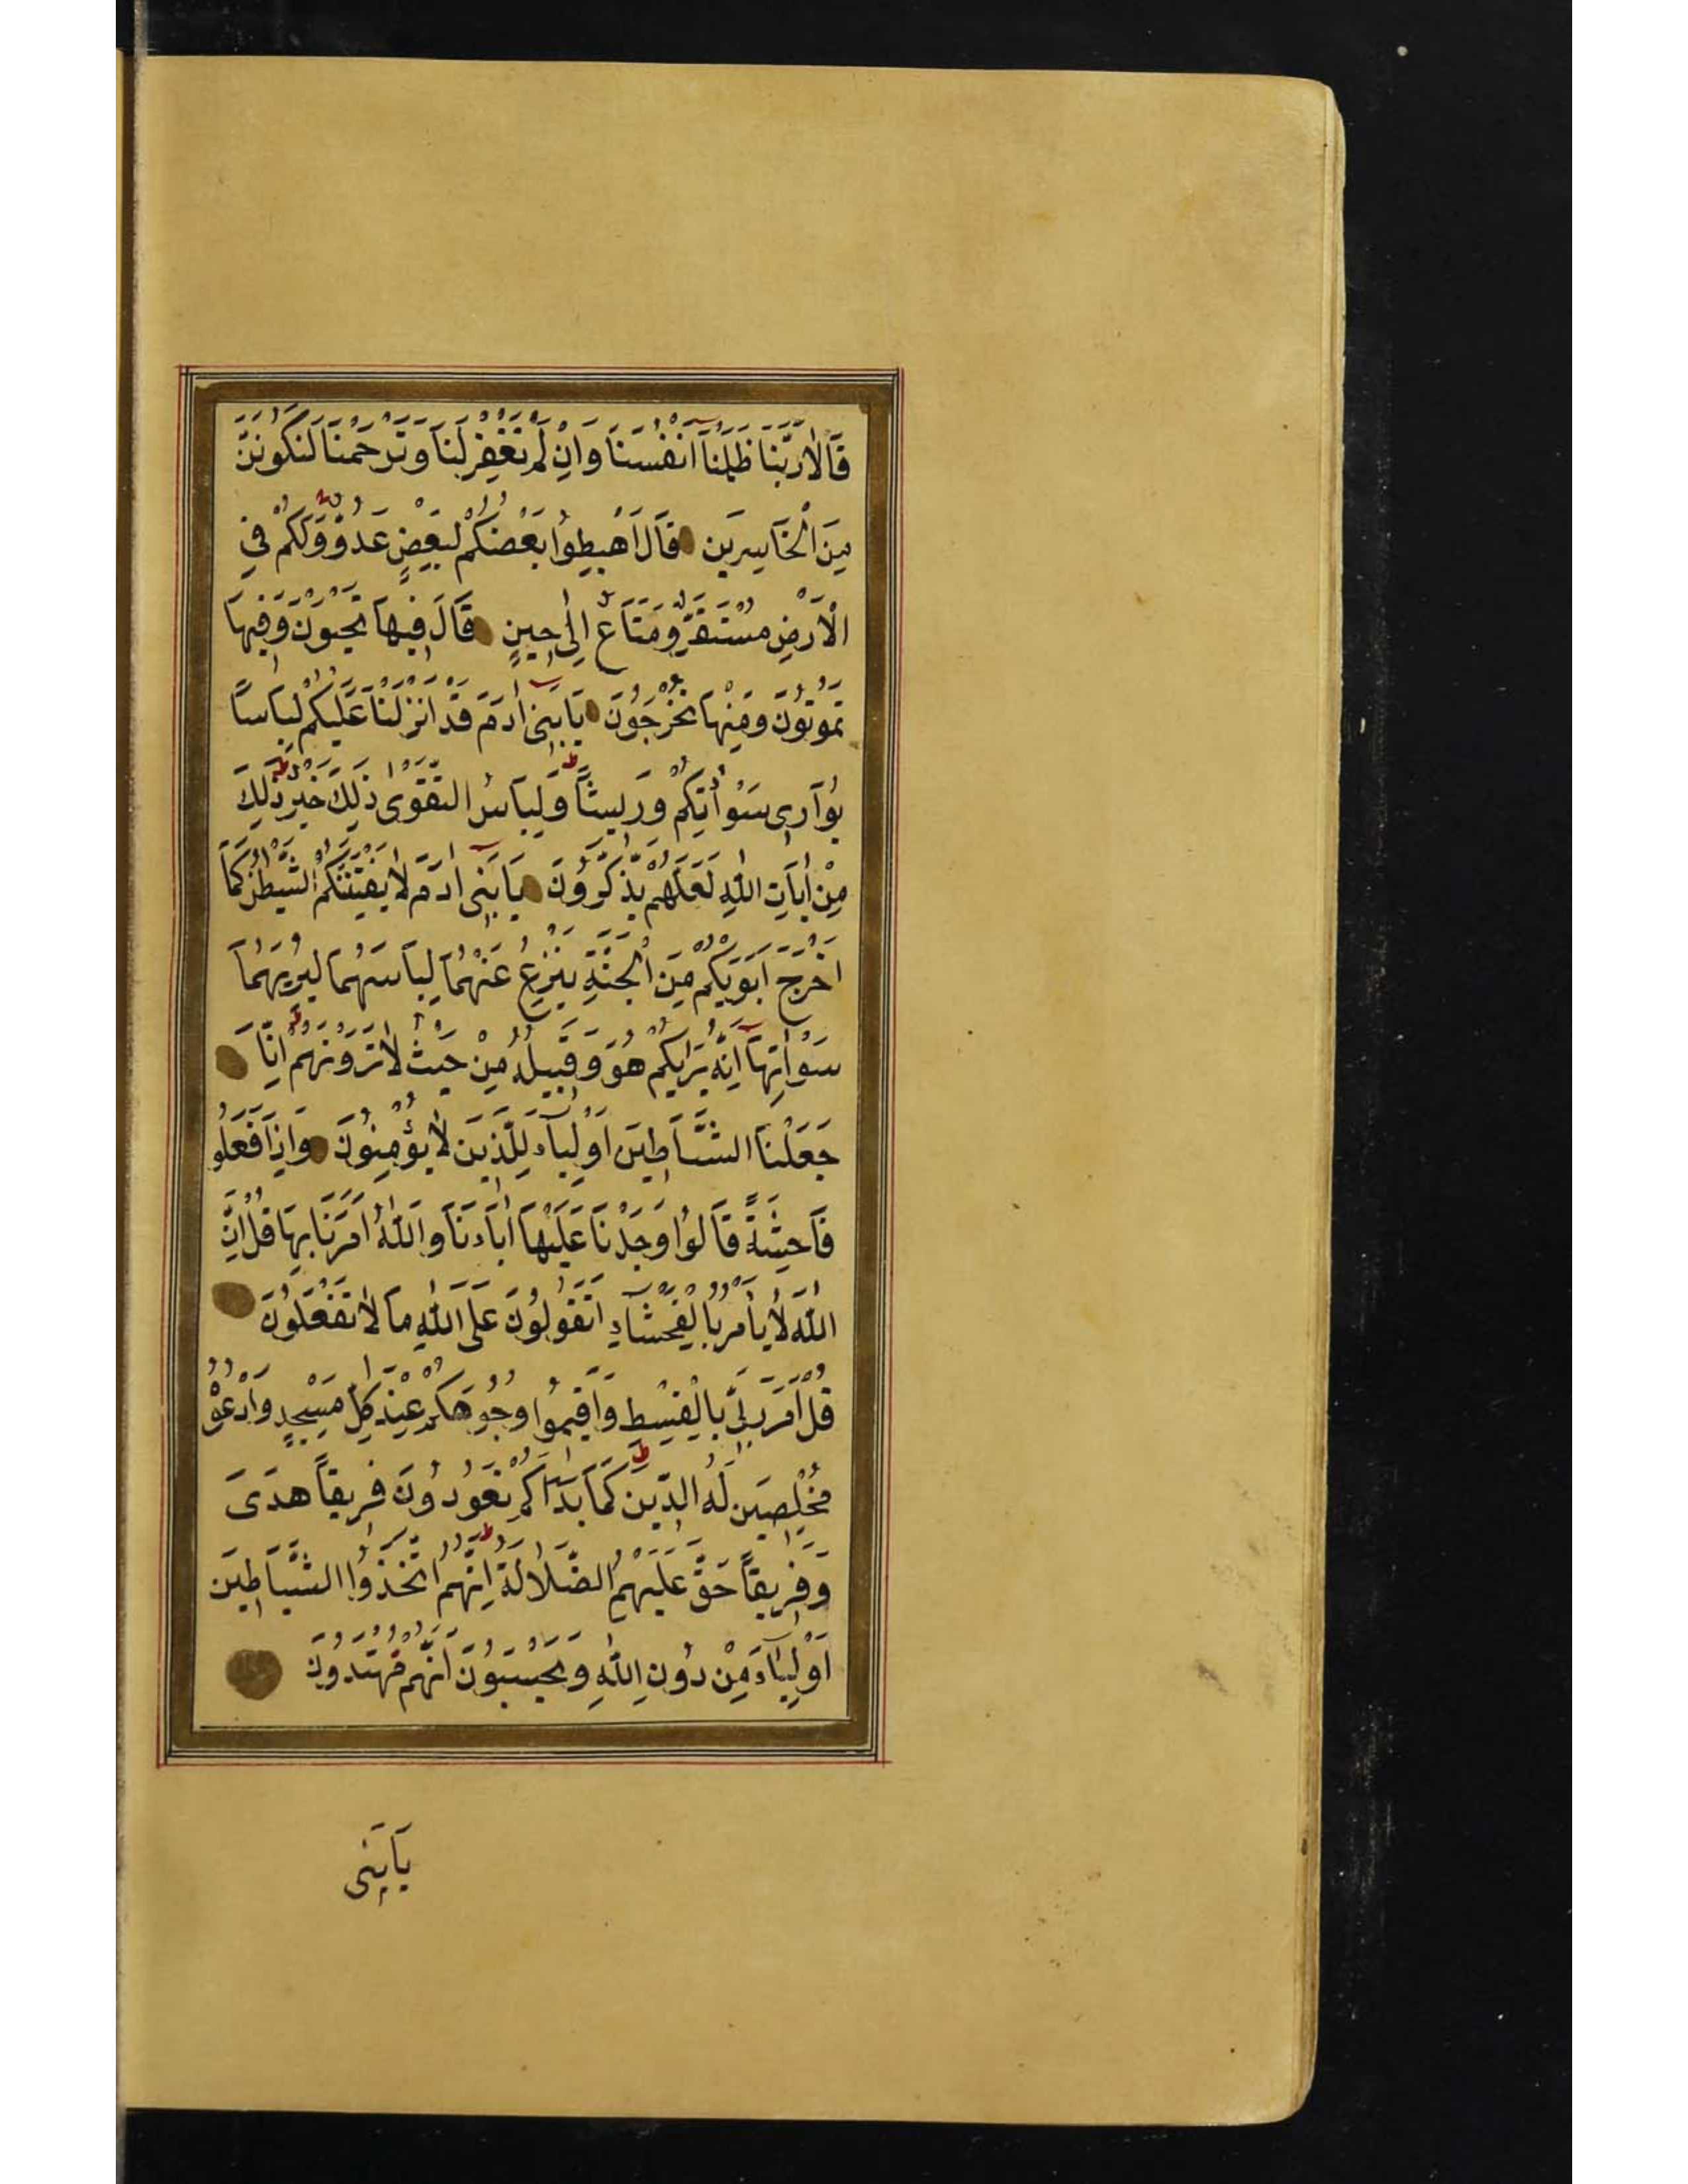 قَالَا رَبَّنَا ظَلَمْنَا اَنْفُسَنَا وَاِنْ لَمْ تَغْفِرْ لَنَا وَتَرْحَمْنَا لَنَكُونَنَّ
مِنَ الْخَاسِرِينَ قَالَ اهْبِطُوا بَعْضُكُمْ لِبَعْضٍ عَدُوٌّ وَلَكُمْ فِي
الْاَرْضِ مُسْتَقَرٌّ وَمَتَاعٌ اِلٰى حِينٍ قَالَ فِيهَا تَحْيَوْنَ وَفِيهَا
تَمُوتُونَ وَمِنْهَا تُخْرَجُونَ يَا بَنِى اٰدَمَ قَدْ اَنْزَلْنَا عَلَيْكُمْ لِبَاسًا
يُوَارِى سَوْاٰتِكُمْ وَرِيشًا وَلِبَاسُ التَّقْوٰى ذٰلِكَ خَيْرٌ ذٰلِكَ
مِنْ اٰيَاتِ اللّٰهِ لَعَلَّهُمْ يَذَّكَّرُونَ يَا بَنِى اٰدَمَ لَا يَفْتِنَنَّكُمُ الشَّيْطٰنُ كَمَا
اَخْرَجَ اَبَوَيْكُمْ مِنَ الْجَنَّةِ يَنْزِعُ عَنْهُمَا لِبَاسَهُمَا لِيُرِيَهُمَا
سَوْاٰتِهِمَا اِنَّهُ يَرٰيكُمْ هُوَ وَقَبِيلُهُ مِنْ حَيْثُ لَا تَرَوْنَهُمْ اِنَّا
جَعَلْنَا الشَّيَاطِينَ اَوْلِيَاءَ لِلَّذِينَ لَا يُؤْمِنُونَ وَاِذَا فَعَلُوا
فَاحِشَةً قَالُوا وَجَدْنَا عَلَيْهَا اٰبَاءَنَا وَاللّٰهُ اَمَرَنَا بِهَا قُلْ اِنَّ
اللّٰهَ لَا يَأْمُرُ بِالْفَحْشَاءِ اَتَقُولُونَ عَلَى اللّٰهِ مَا لَا تَفْعَلُونَ
قُلْ اَمَرَ رَبِّى بِالْقِسْطِ وَاَقِيمُوا وُجُوهَكُمْ عِنْدَ كُلِّ مَسْجِدٍ وَادْعُوهُ
مُخْلِصِينَ لَهُ الدِّينَ كَمَا بَدَاَكُمْ تَعُودُونَ فَرِيقًا هَدٰى
وَفَرِيقًا حَقَّ عَلَيْهِمُ الضَّلَالَةُ اِنَّهُمُ اتَّخَذُوا الشَّيَاطِينَ
اَوْلِيَاءَ مِنْ دُونِ اللّٰهِ وَيَحْسَبُونَ اَنَّهُمْ مُهْتَدُونَ
يَا بَنِى